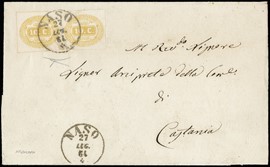 NASO
27
AUG.
61
Al Rev.do Signore
Signor Arciprete della Com.e
di
Castania
NASO
27
AUG.
61